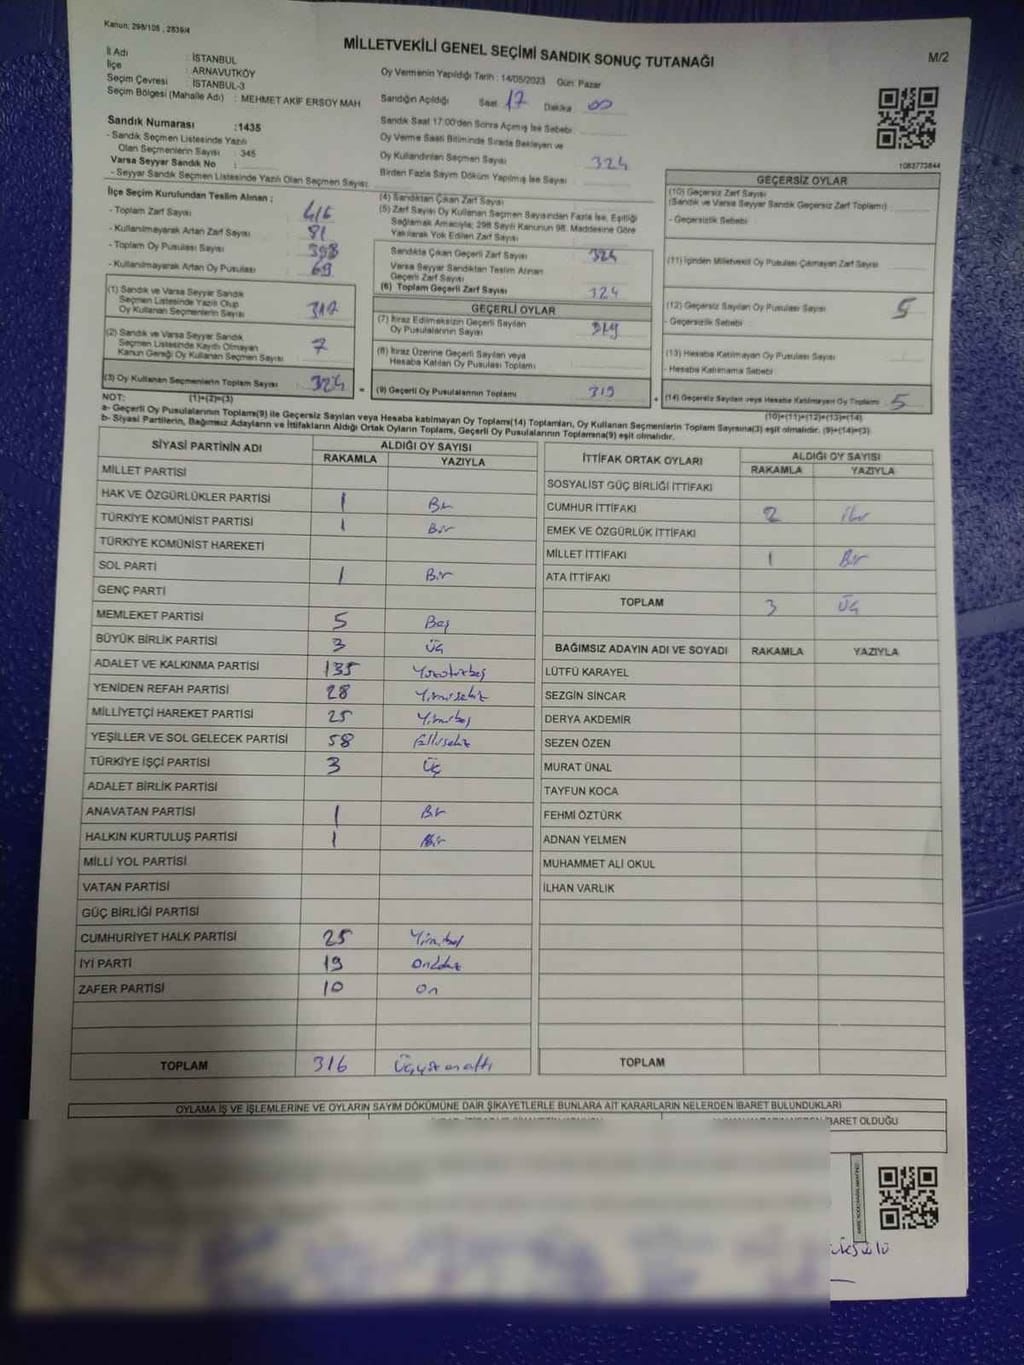 Kanun: 298/105 , 2839/4
MİLLETVEKİLİ GENEL SEÇİMİ SANDIK SONUÇ TUTANAĞI
M/2
İl Adı : İSTANBUL
İlçe : ARNAVUTKÖY
Seçim Çevresi : İSTANBUL-3
Seçim Bölgesi (Mahalle Adı) : MEHMET AKİF ERSOY MAH
Oy Vermenin Yapıldığı Tarih : 14/05/2023 Gün: Pazar
Sandığın Açıldığı Saat 17 Dakika 00
Sandık Saat 17:00'den Sonra Açılmış İse Sebebi
Oy Verme Saati Bitiminde Sırada Bekleyen ve
Oy Kullandırılan Seçmen Sayısı 324
Birden Fazla Sayım Döküm Yapılmış İse Sayısı
1083773844
Sandık Numarası :1435
- Sandık Seçmen Listesinde Yazılı
Olan Seçmenlerin Sayısı : 345
Varsa Seyyar Sandık No :
- Seyyar Sandık Seçmen Listesinde Yazılı Olan Seçmen Sayısı:
İlçe Seçim Kurulundan Teslim Alınan ;
- Toplam Zarf Sayısı
- Kullanılmayarak Artan Zarf Sayısı 81
- Toplam Oy Pusulası Sayısı 398
- Kullanılmayarak Artan Oy Pusulası 69
(1) Sandık ve Varsa Seyyar Sandık
Seçmen Listesinde Yazılı Olup
Oy Kullanan Seçmenlerin Sayısı 317
(2) Sandık ve Varsa Seyyar Sandık
Seçmen Listesinde Kayıtlı Olmayan
Kanun Gereği Oy Kullanan Seçmen Sayısı 7
(3) Oy Kullanan Seçmenlerin Toplam Sayısı 324
(1)+(2)=(3)
(4) Sandıktan Çıkan Zarf Sayısı
(5) Zarf Sayısı Oy Kullanan Seçmen Sayısından Fazla İse, Eşitliği
Sağlamak Amacıyla; 298 Sayılı Kanunun 98. Maddesine Göre
Yakılarak Yok Edilen Zarf Sayısı
Sandıkta Çıkan Geçerli Zarf Sayısı 324
Varsa Seyyar Sandıktan Teslim Alınan
Geçerli Zarf Sayısı
(6) Toplam Geçerli Zarf Sayısı 324
GEÇERLİ OYLAR
(7) İtiraz Edilmeksizin Geçerli Sayılan
Oy Pusulalarının Sayısı 319
(8) İtiraz Üzerine Geçerli Sayılan veya
Hesaba Katılan Oy Pusulaları Toplamı
=
(9) Geçerli Oy Pusulalarının Toplamı 319
+
GEÇERSİZ OYLAR
(10) Geçersiz Zarf Sayısı
(Sandık ve Varsa Seyyar Sandık Geçersiz Zarf Toplamı)
- Geçersizlik Sebebi
(11) İçinden Milletvekili Oy Pusulası Çıkmayan Zarf Sayısı
(12) Geçersiz Sayılan Oy Pusulası Sayısı 5
- Geçersizlik Sebebi
(13) Hesaba Katılmayan Oy Pusulası Sayısı
- Hesaba Katılmama Sebebi
(14) Geçersiz Sayılan veya Hesaba Katılmayan Oy Toplamı 5
(10)+(11)+(12)+(13)=(14)
NOT:
a- Geçerli Oy Pusulalarının Toplamı(9) ile Geçersiz Sayılan veya Hesaba katılmayan Oy Toplamı(14) Toplamları, Oy Kullanan Seçmenlerin Toplam Sayısına(3) eşit olmalıdır. (9)+(14)=(3)
b- Siyasi Partilerin, Bağımsız Adayların ve İttifakların Aldığı Ortak Oyların Toplamı, Geçerli Oy Pusulalarının Toplamına(9) eşit olmalıdır.
SİYASİ PARTİNİN ADI ALDIĞI OY SAYISI
RAKAMLA YAZIYLA
MİLLET PARTİSİ
HAK VE ÖZGÜRLÜKLER PARTİSİ 1 Bir
TÜRKİYE KOMÜNİST PARTİSİ 1 Bir
TÜRKİYE KOMÜNİST HAREKETİ
SOL PARTİ 1 Bir
GENÇ PARTİ
MEMLEKET PARTİSİ 5 Beş
BÜYÜK BİRLİK PARTİSİ 3 Üç
ADALET VE KALKINMA PARTİSİ 135 Yüzotuzbeş
YENİDEN REFAH PARTİSİ 28 Yirmisekiz
MİLLİYETÇİ HAREKET PARTİSİ 25 Yirmibeş
YEŞİLLER VE SOL GELECEK PARTİSİ 58 Ellisekiz
TÜRKİYE İŞÇİ PARTİSİ 3 Üç
ADALET BİRLİK PARTİSİ
ANAVATAN PARTİSİ 1 Bir
HALKIN KURTULUŞ PARTİSİ 1 Bir
MİLLİ YOL PARTİSİ
VATAN PARTİSİ
GÜÇ BİRLİĞİ PARTİSİ
CUMHURİYET HALK PARTİSİ 25 Yirmibeş
İYİ PARTİ 19 Ondokuz
ZAFER PARTİSİ 10 On
TOPLAM 316 Üçyüzonaltı
İTTİFAK ORTAK OYLARI ALDIĞI OY SAYISI
RAKAMLA YAZIYLA
SOSYALİST GÜÇ BİRLİĞİ İTTİFAKI
CUMHUR İTTİFAKI 2 İki
EMEK VE ÖZGÜRLÜK İTTİFAKI
MİLLET İTTİFAKI 1 Bir
ATA İTTİFAKI
TOPLAM 3 Üç
BAĞIMSIZ ADAYIN ADI VE SOYADI RAKAMLA YAZIYLA
LÜTFÜ KARAYEL
SEZGİN SİNCAR
DERYA AKDEMİR
SEZEN ÖZEN
MURAT ÜNAL
TAYFUN KOCA
FEHMİ ÖZTÜRK
ADNAN YELMEN
MUHAMMET ALİ OKUL
İLHAN VARLIK
TOPLAM
OYLAMA İŞ VE İŞLEMLERİNE VE OYLARIN SAYIM DÖKÜMÜNE DAİR ŞİKAYETLERLE BUNLARA AİT KARARLARIN NELERDEN İBARET BULUNDUKLARI
İBARET OLDUĞU